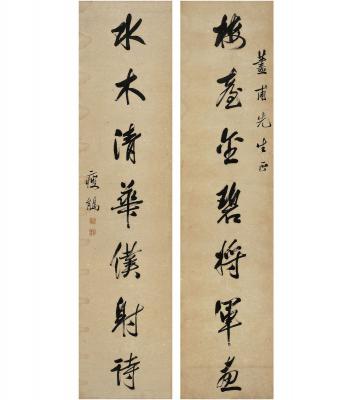 楼臺金碧將軍畫
藎甫先生正
水木清華僕射詩
瘦鶴